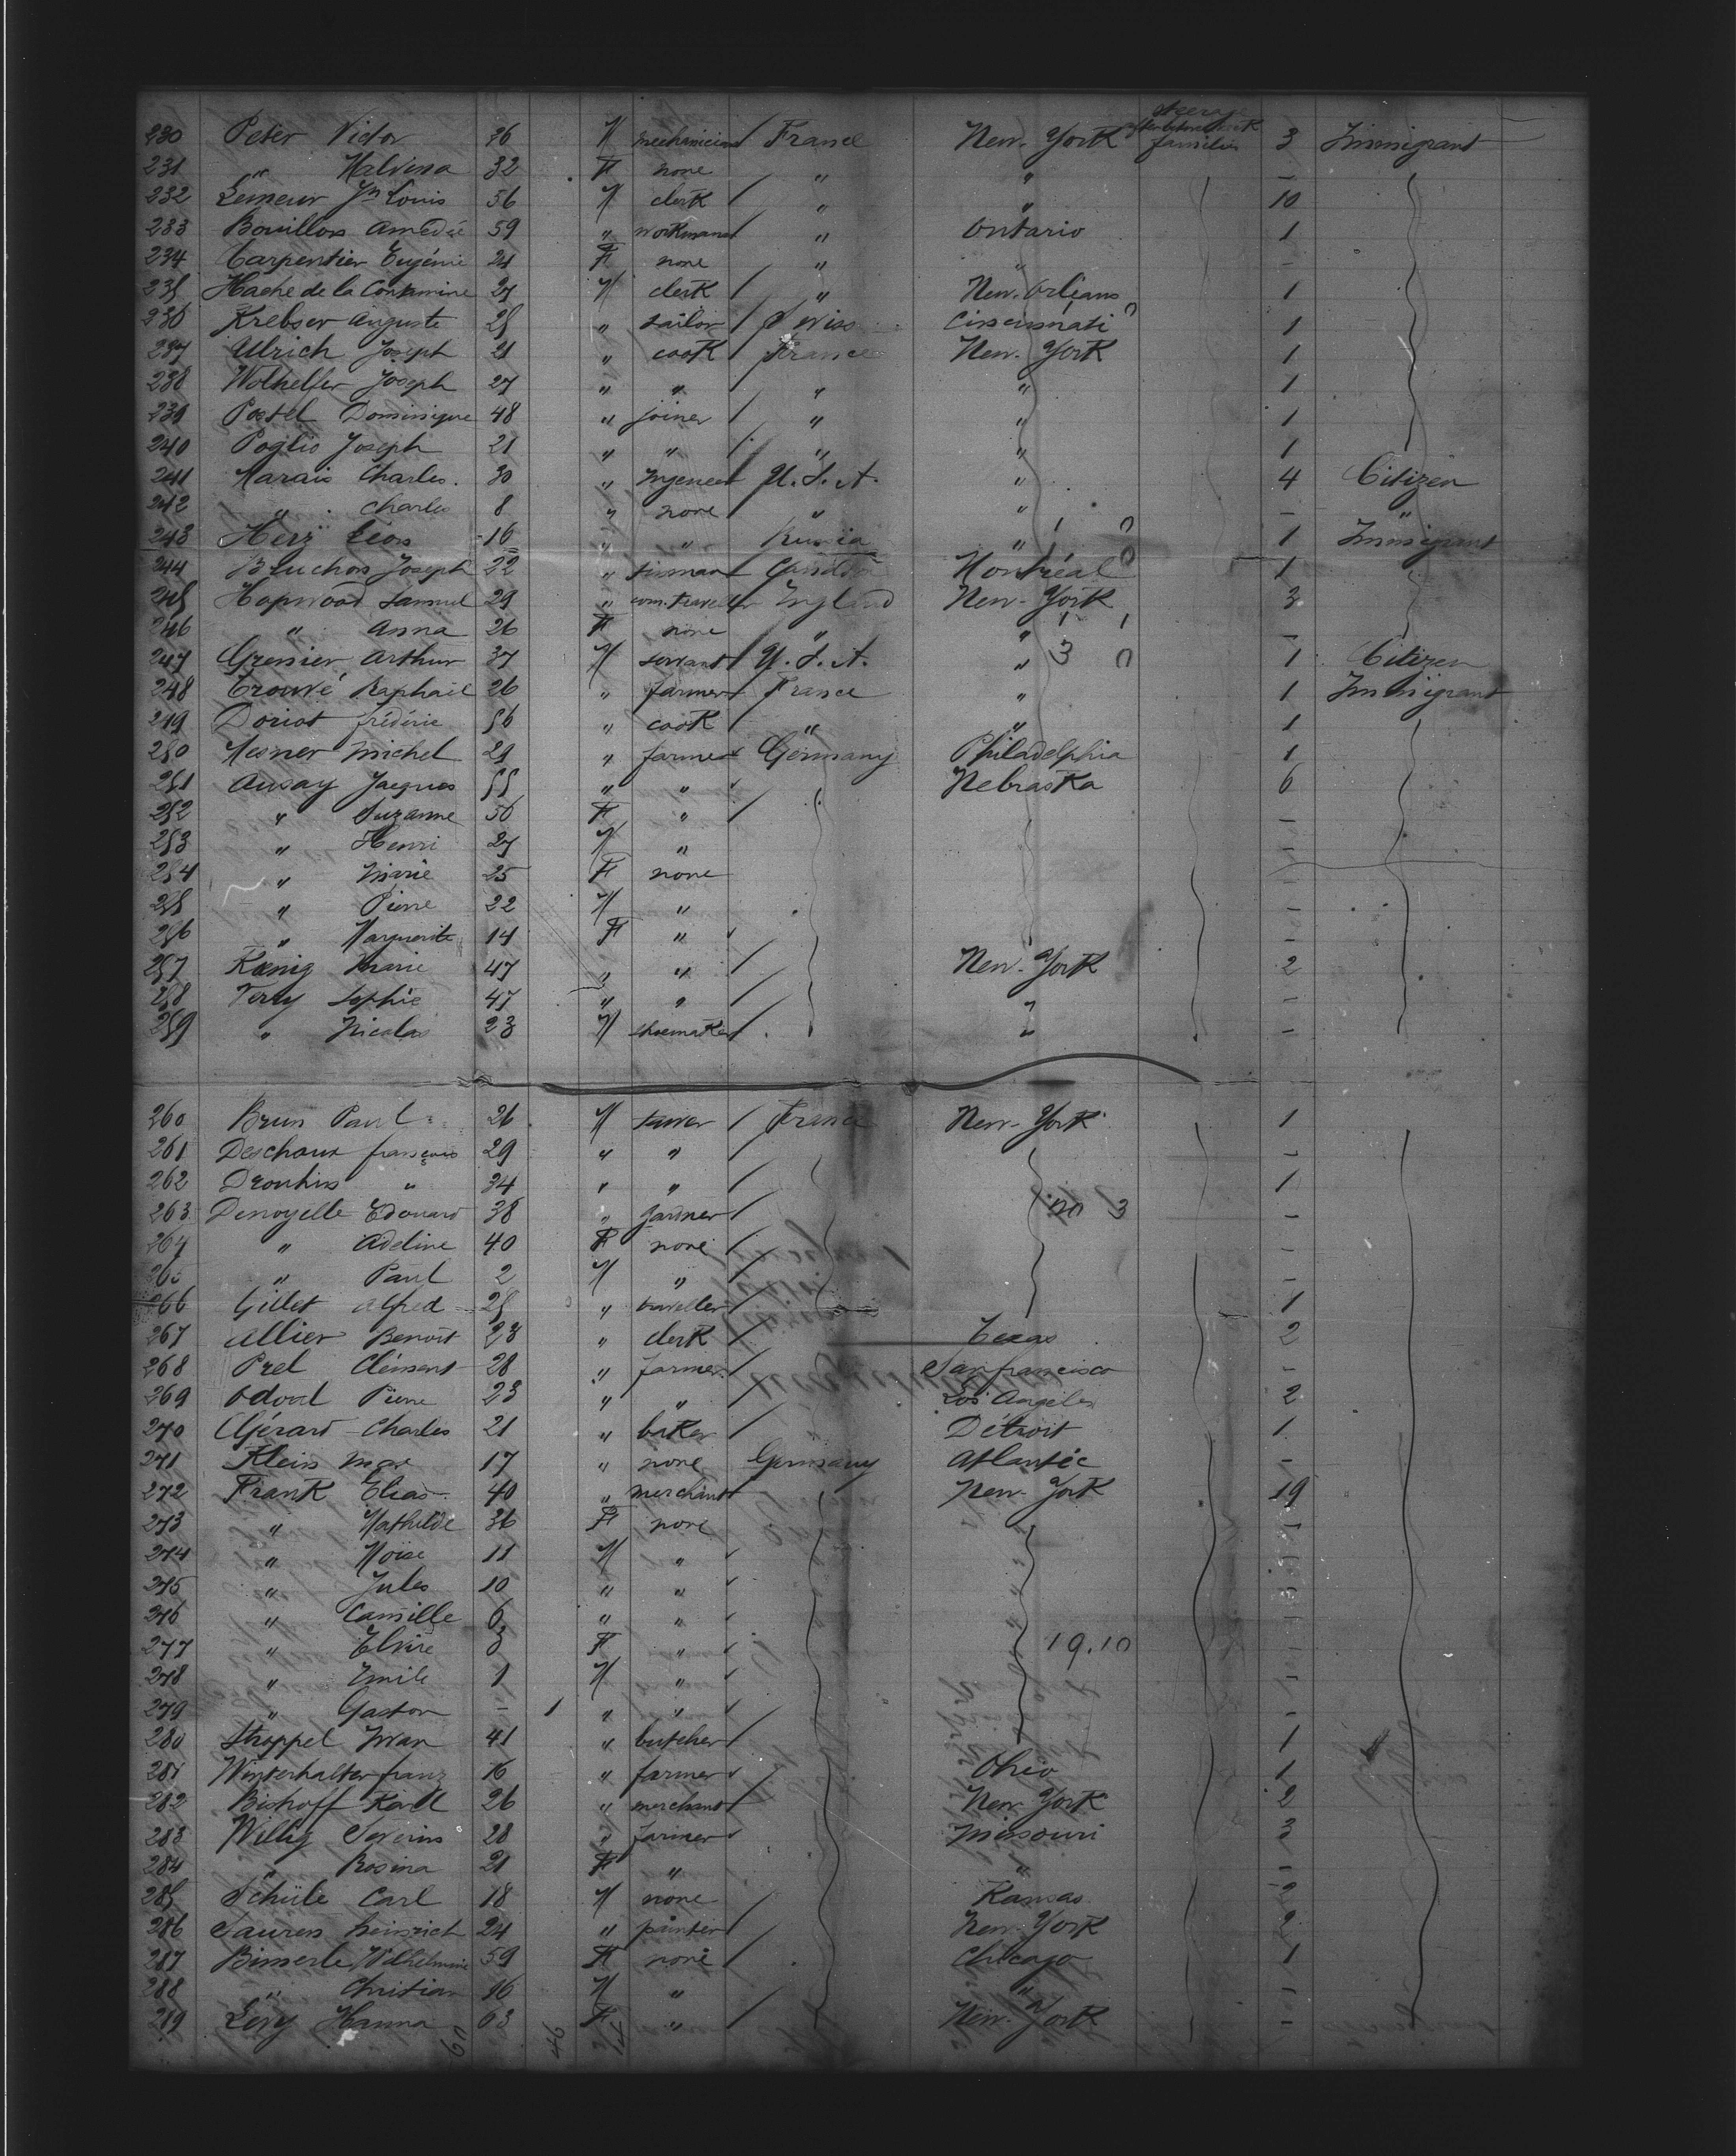 Steerage
families
230 Peter Victor 36 M mechanician / France New-York 3 Immigrant
231 " Malvina 32 F none " " -
232 Lemeur Jn Louis 56 M clerk / " " 10
233 Bouillon Amédée 59 " workman / " Ontario 1
234 Carpentier Eugénie 21 F none / " " -
235 Hache de la Contamine 27 M clerk / " New-Orleans 1
236 Krebser Auguste 25 " tailor / Swiss Cincinnati 1
237 Ulrich Joseph 21 " cook / France New-York 1
238 Wolhelfer Joseph 27 " " / " " 1
239 Postel Dominique 48 " joiner / " " 1
240 Poglio Joseph 21 " " / " " 1
241 Marais Charles. 30 " U.S.A. " 4 Citizen
242 " Charles 8 " none " " - "
243 Herz Léon 16 " " Russia " 1 Immigrant
244 Joseph 22 " Montréal 1
245 Hopwood Samuel 29 " com. traveller England New-York 3
246 " Anna 26 F none " " -
247 Grenier Arthur 37 M servant / U.S.A. " 3 0 1 Citizen
248 Trouvé Raphaël 26 " farmer France " 1 Immigrant
249 Doriot frédéric 56 " cook / " " 1
250 Mesner Michel 21 " farmer Germany Philadelphia 1
251 Ausay Jacques 55 " " Nebraska 6
252 " Suzanne 50 F " / -
253 " Henri 27 M " -
254 " Marie 25 F none -
255 " Pierre 22 M " -
256 " Marguerite 14 F " -
257 Kœnig Marie 47 " " / New-York 2
258 Sophie 47 " " / " -
259 " Nicolas 23 M shoemaker / " -
260 Brun Paul 26 M / France New-York 1
261 Deschaux françois 29 " " / -
262 Drouhin " 34 " " / 1
263 Denoyelle Edouard 38 " gardner / -
264 " Adeline 40 F none / -
265 " Paul 2 M " / -
266 Gillet Alfred 25 " traveller / 1
267 Allier Benoît 23 " clerk / Texas 2
268 Prel Clément 28 " farmer / San francisco -
269 Odoul Pierre 23 " " / Los Angeles 2
270 Gérard Charles 21 " baker / Détroit 1
271 Klein Max 17 " none Germany Atlantic -
272 Frank Elias 40 " merchant New-York 19
273 " Mathilde 36 F none
274 " Moïse 11 M "
275 " Jules 10 " "
276 " Camille 6 " "
277 " Elvire 3 F " 19.10
278 " Emile 1 M " -
279 " Gaston - 1 " " -
280 Stroppel Iwan 41 " butcher / 1
281 Winterhalter franz 16 " farmer Ohio 1
282 Bishoff Karl 26 " merchant / New-York 2
283 Willig Severin 28 " farmer Missouri 3
284 " Rosina 21 F " " -
285 Schüle Carl 18 M none Kansas -
286 Sauren Heinrich 24 " painter / New-York 2
287 Bimerle Wilhelmine 59 F none / Chicago 1
288 " Christian 16 M " " -
289 Levy Hanna 63 F " / New-York -